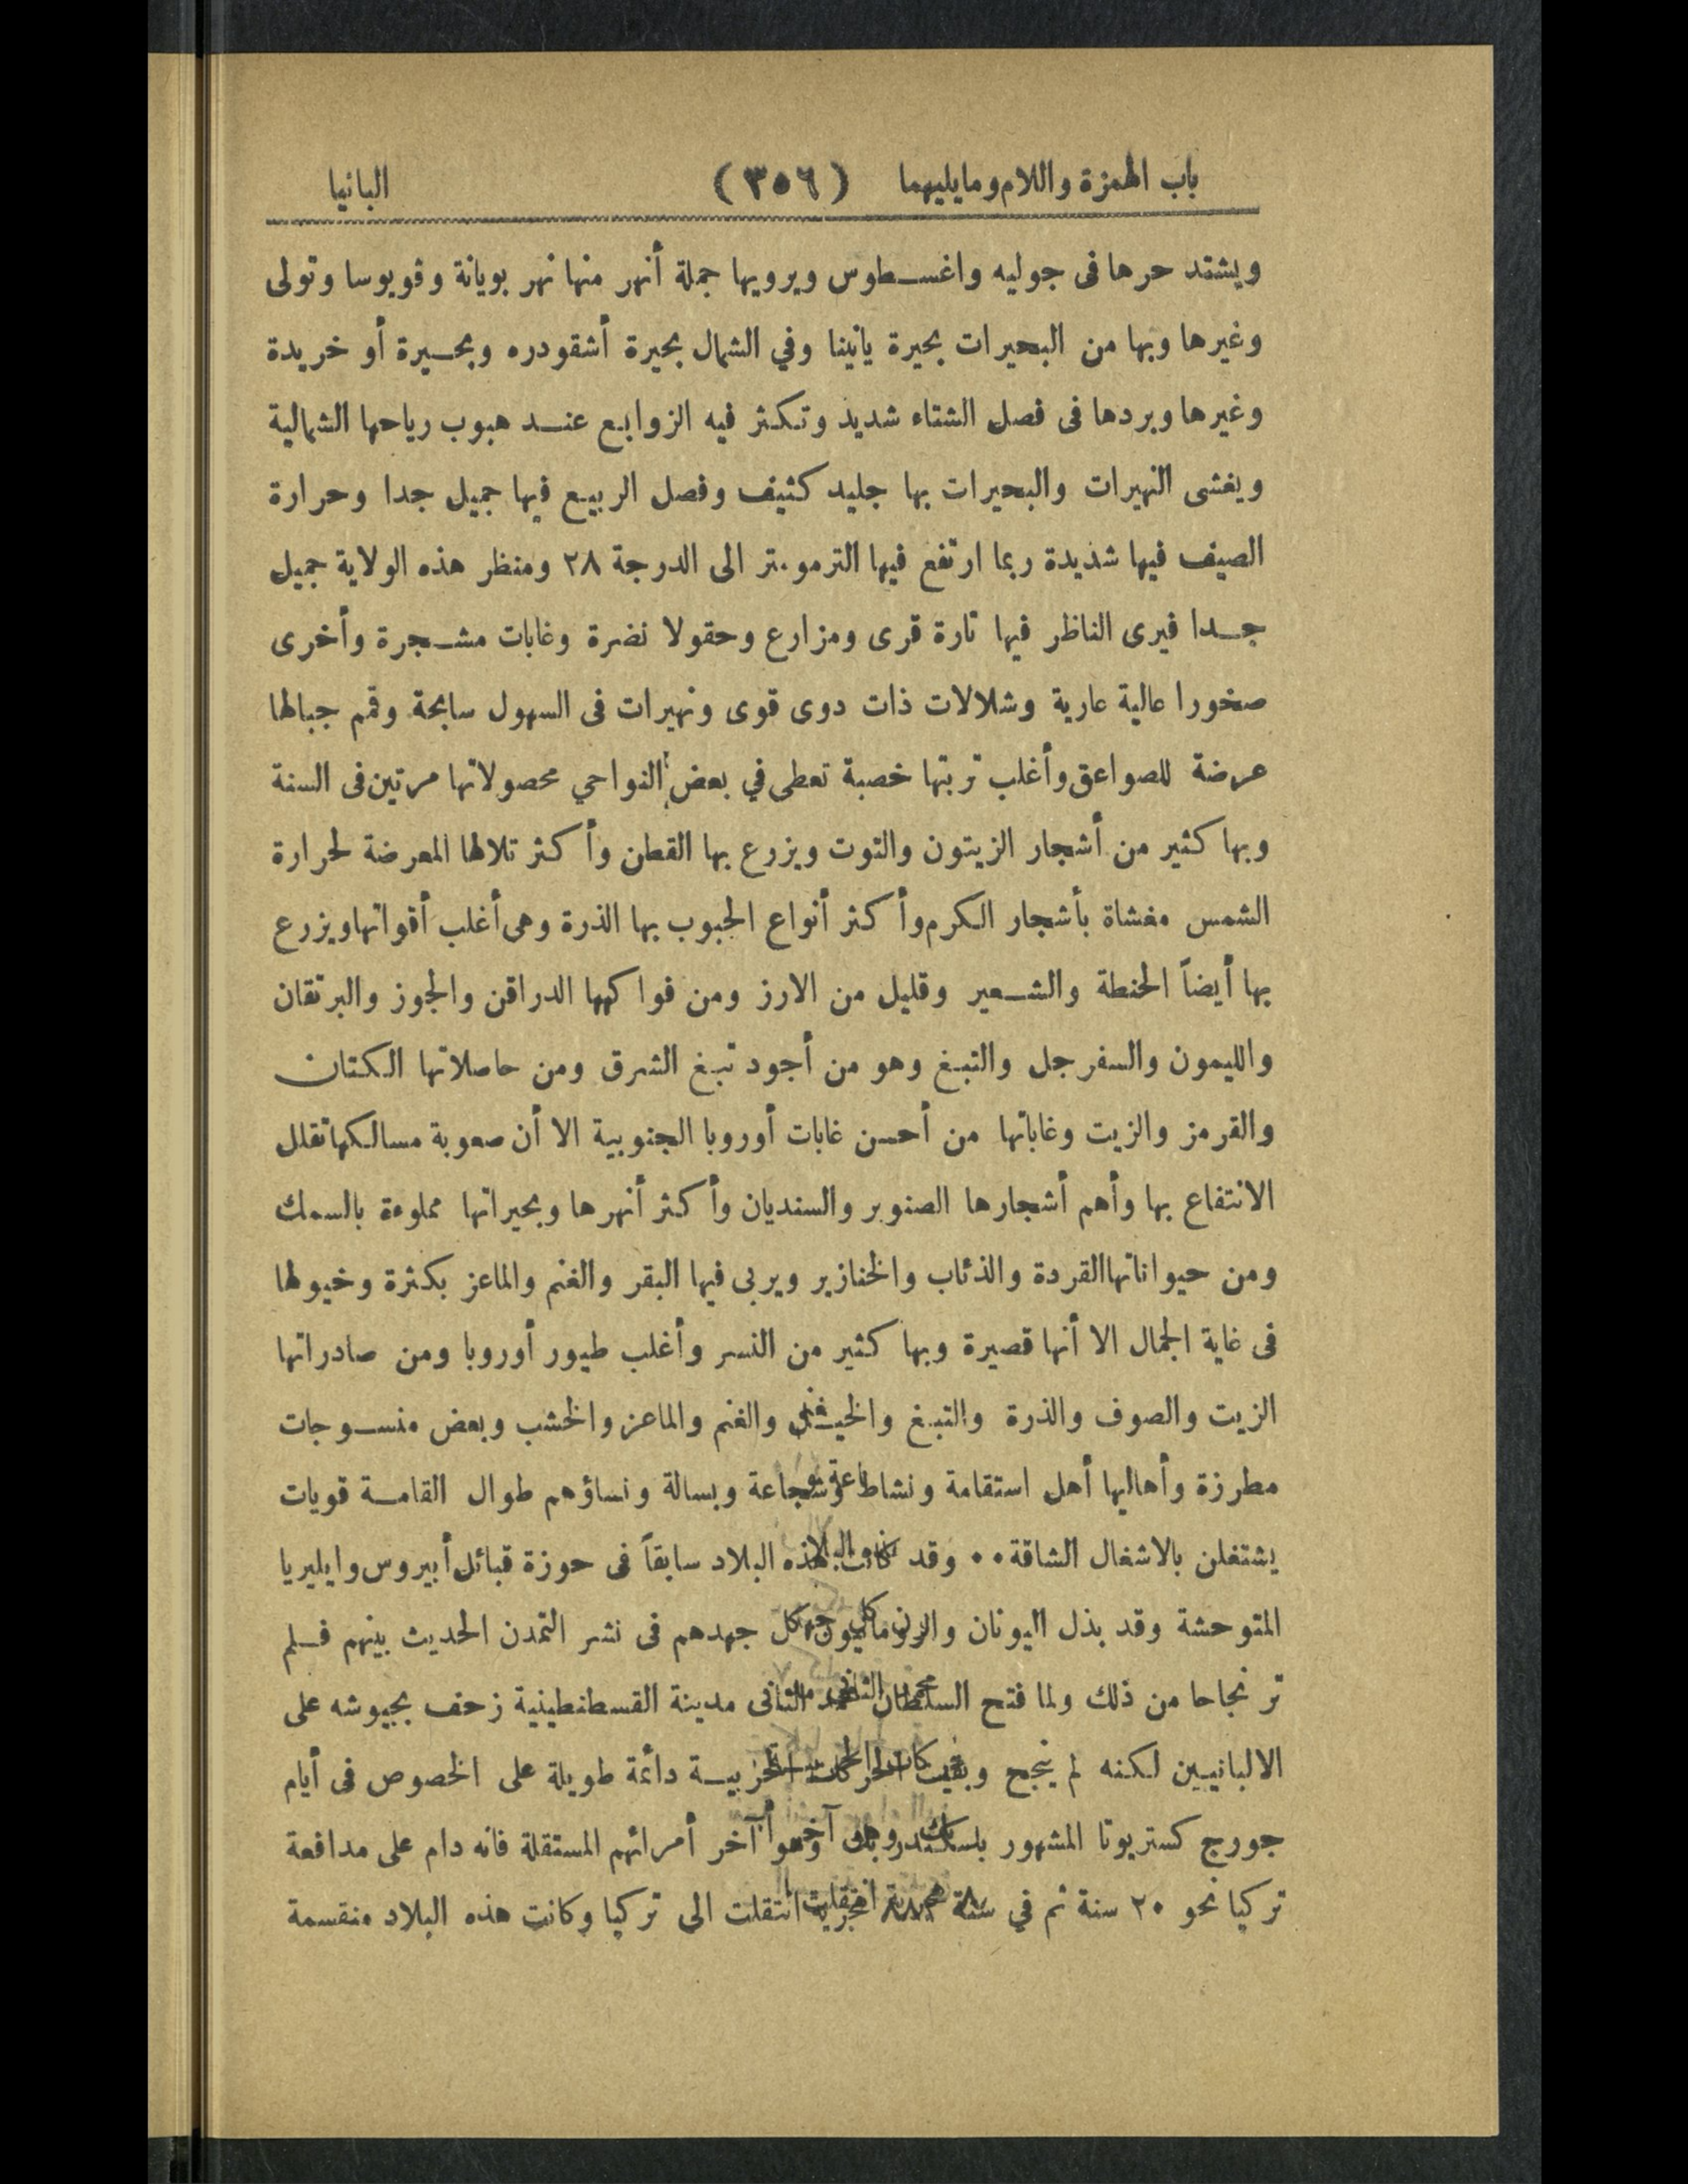 باب الهمزة واللام ومايليهما (٣٥٦) البانيا
ويشتد حرها فى جوليه واغسطوس ويرويها جملة أنهر منها نهر بويانة وفويوسا وتولى
وغيرها وبها من البحيرات بحيرة يانينا وفي الشمال بحيرة أشقودره وبحيرة أو خريدة
وغيرها وبردها فى فصل الشتاء شديد وتكثر فيه الزوابع عند هبوب رياحها الشمالية
ويغشى النهيرات والبحيرات بها جليد كثيف وفصل الربيع فيها جميل جدا وحرارة
الصيف فيها شديدة ربما ارتفع فيها الترمومتر الى الدرجة ٢٨ ومنظر هذه الولاية جميل
جدا فيرى الناظر فيها تارة قرى ومزارع وحقولا نضرة وغابات مشجرة وأخرى
صخورا عالية عارية وشلالات ذات دوى قوى ونهيرات فى السهول سابحة وقمم جبالها
عرضة للصواعق وأغلب تربتها خصبة تعطى في بعض النواحي محصولاتها مرتين فى السنة
وبها كثير من أشجار الزيتون والتوت ويزرع بها القطن وأكثر تلالها المعرضة لحرارة
الشمس مغشاة بأشجار الكرم وأكثر أنواع الحبوب بها الذرة وهى أغلب أقواتها ويزرع
بها أيضاً الحنطة والشعير وقليل من الارز ومن فواكهها الدراقن والجوز والبرتقان
والليمون والسفرجل والتبغ وهو من أجود تبغ الشرق ومن حاصلاتها الكتان
والقرمز والزيت وغاباتها من أحسن غابات أوروبا الجنوبية الا أن صعوبة مسالكها تقلل
الانتفاع بها وأهم أشجارها الصنوبر والسنديان وأكثر أنهرها وبحيراتها مملوءة بالسمك
ومن حيواناتها القردة والذئاب والخنازير ويربى فيها البقر والغنم والماعز بكثرة وخيولها
فى غاية الجمال الا أنها قصيرة وبها كثير من النسر وأغلب طيور أوروبا ومن صادراتها
الزيت والصوف والذرة والتبغ والغنم والماعز والخشب وبعض منسوجات
مطرزة وأهاليها أهل استقامة ونشاط وشجاعة وبسالة ونساؤهم طوال القامة قويات
يشتغلن بالاشغال الشاقة ٠٠ وقد كانت هذه البلاد سابقاً فى حوزة قبائل أبيروس وايليريا
المتوحشة وقد بذل اليونان والرومانيون كل جهدهم فى نشر التمدن الحديث بينهم فلم
تر نجاحا من ذلك ولما فتح السلطان محمد الثانى مدينة القسطنطينية زحف بجيوشه على
الالبانيين لكنه لم ينجح وبقيت الحركات الحربية دائمة طويلة على الخصوص فى أيام
جورج كستريوتا المشهور بلسكندر بك وهو آخر أمرائهم المستقلة فانه دام على مدافعة
تركيا نحو ٢٠ سنة ثم في سنة هجرية انتقلت الى تركيا وكانت هذه البلاد منقسمة